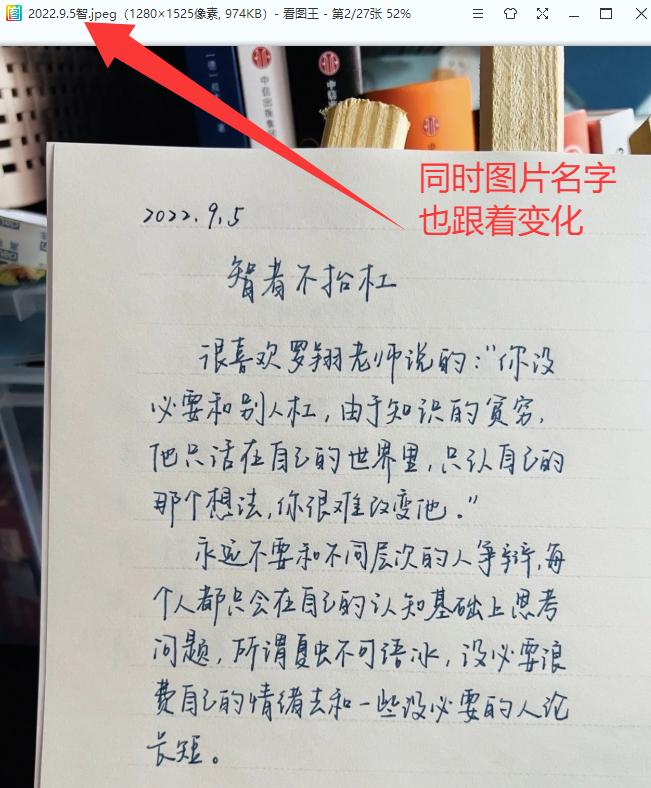 2022.9.5智.jpeg（1280×1525像素, 974KB）- 看图王 - 第2/27张 52%
中信出版集团
同时图片名字
也跟着变化
2022.9.5
智者不抬杠
很喜欢罗翔老师说的："你没
必要和别人杠，由于知识的贫穷，
他只活在自己的世界里，只认自己的
那个想法，你很难改变他。"
永远不要和不同层次的人争辩，每
个人都只会在自己的认知基础上思考
问题，所谓夏虫不可语冰，没必要浪
费自己的情绪去和一些没必要的人论
长短。